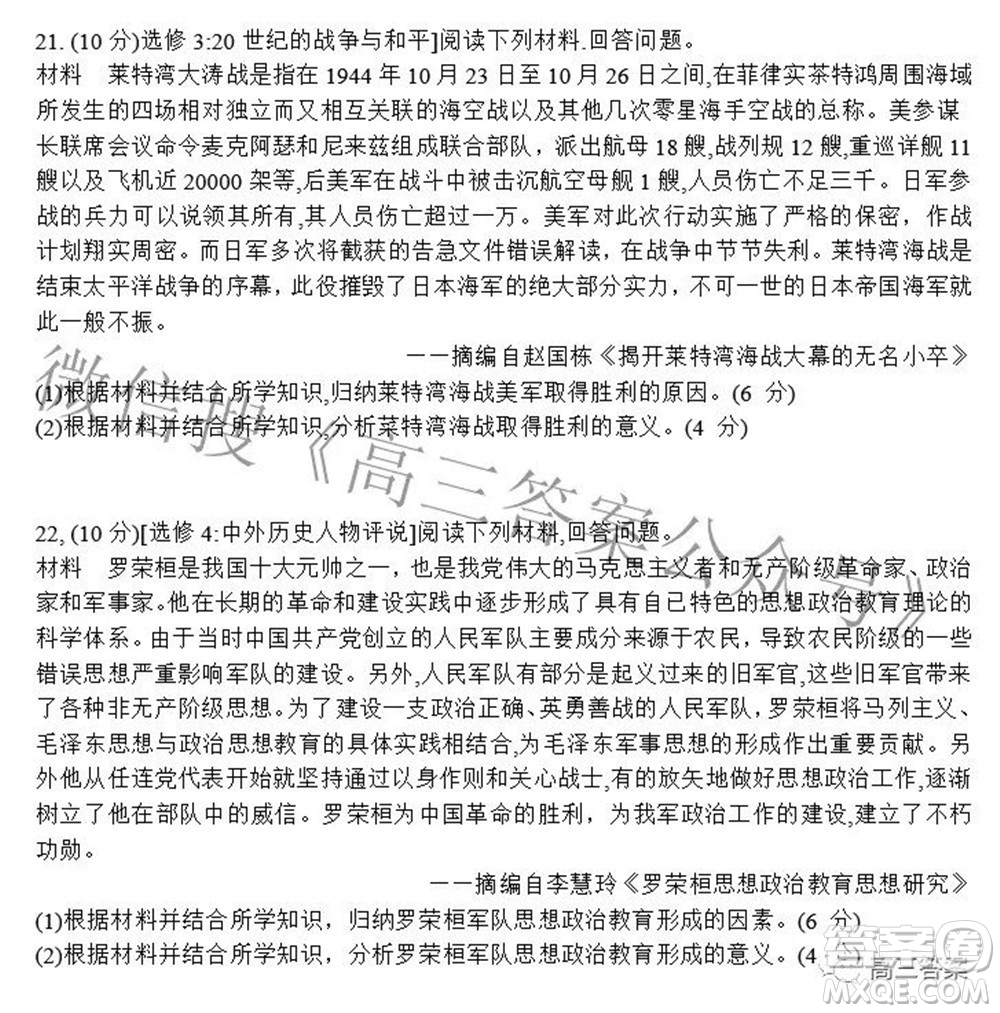 21. (10 分)选修 3:20 世纪的战争与和平]阅读下列材料.回答问题。
材料 莱特湾大涛战是指在 1944 年 10 月 23 日至 10 月 26 日之间,在菲律实茶特鸿周围海域
所发生的四场相对独立而又相互关联的海空战以及其他几次零星海手空战的总称。美参谋
长联席会议命令麦克阿瑟和尼来兹组成联合部队，派出航母 18 艘,战列规 12 艘,重巡详舰 11
艘以及飞机近 20000 架等,后美军在战斗中被击沉航空母舰 1 艘,人员伤亡不足三千。日军参
战的兵力可以说领其所有,其人员伤亡超过一万。美军对此次行动实施了严格的保密，作战
计划翔实周密。而日军多次将截获的告急文件错误解读，在战争中节节失利。莱特湾海战是
结束太平洋战争的序幕，此役摧毁了日本海军的绝大部分实力，不可一世的日本帝国海军就
此一般不振。
——摘编自赵国栋《揭开莱特湾海战大幕的无名小卒》
(1)根据材料并结合所学知识,归纳莱特湾海战美军取得胜利的原因。(6 分)
(2)根据材料并结合所学知识,分析菜特湾海战取得胜利的意义。(4 分)
微信搜《高三答案公众号》
22, (10 分)[选修 4:中外历史人物评说]阅读下列材料,回答问题。
材料 罗荣桓是我国十大元帅之一，也是我党伟大的马克思主义者和无产阶级革命家、政治
家和军事家。他在长期的革命和建设实践中逐步形成了具有自己特色的思想政治教育理论的
科学体系。由于当时中国共产党创立的人民军队主要成分来源于农民，导致农民阶级的一些
错误思想严重影响军队的建设。另外,人民军队有部分是起义过来的旧军官,这些旧军官带来
了各种非无产阶级思想。为了建设一支政治正确、英勇善战的人民军队，罗荣桓将马列主义、
毛泽东思想与政治思想教育的具体实践相结合,为毛泽东军事思想的形成作出重要贡献。另
外他从任连党代表开始就坚持通过以身作则和关心战士,有的放矢地做好思想政治工作,逐渐
树立了他在部队中的威信。罗荣桓为中国革命的胜利，为我军政治工作的建设,建立了不朽
功勋。
——摘编自李慧玲《罗荣桓思想政治教育思想研究》
(1)根据材料并结合所学知识，归纳罗荣桓军队思想政治教育形成的因素。(6 分)
(2)根据材料并结合所学知识，分析罗荣桓军队思想政治教育形成的意义。(4
高三答案
答案圈
MXQE.COM